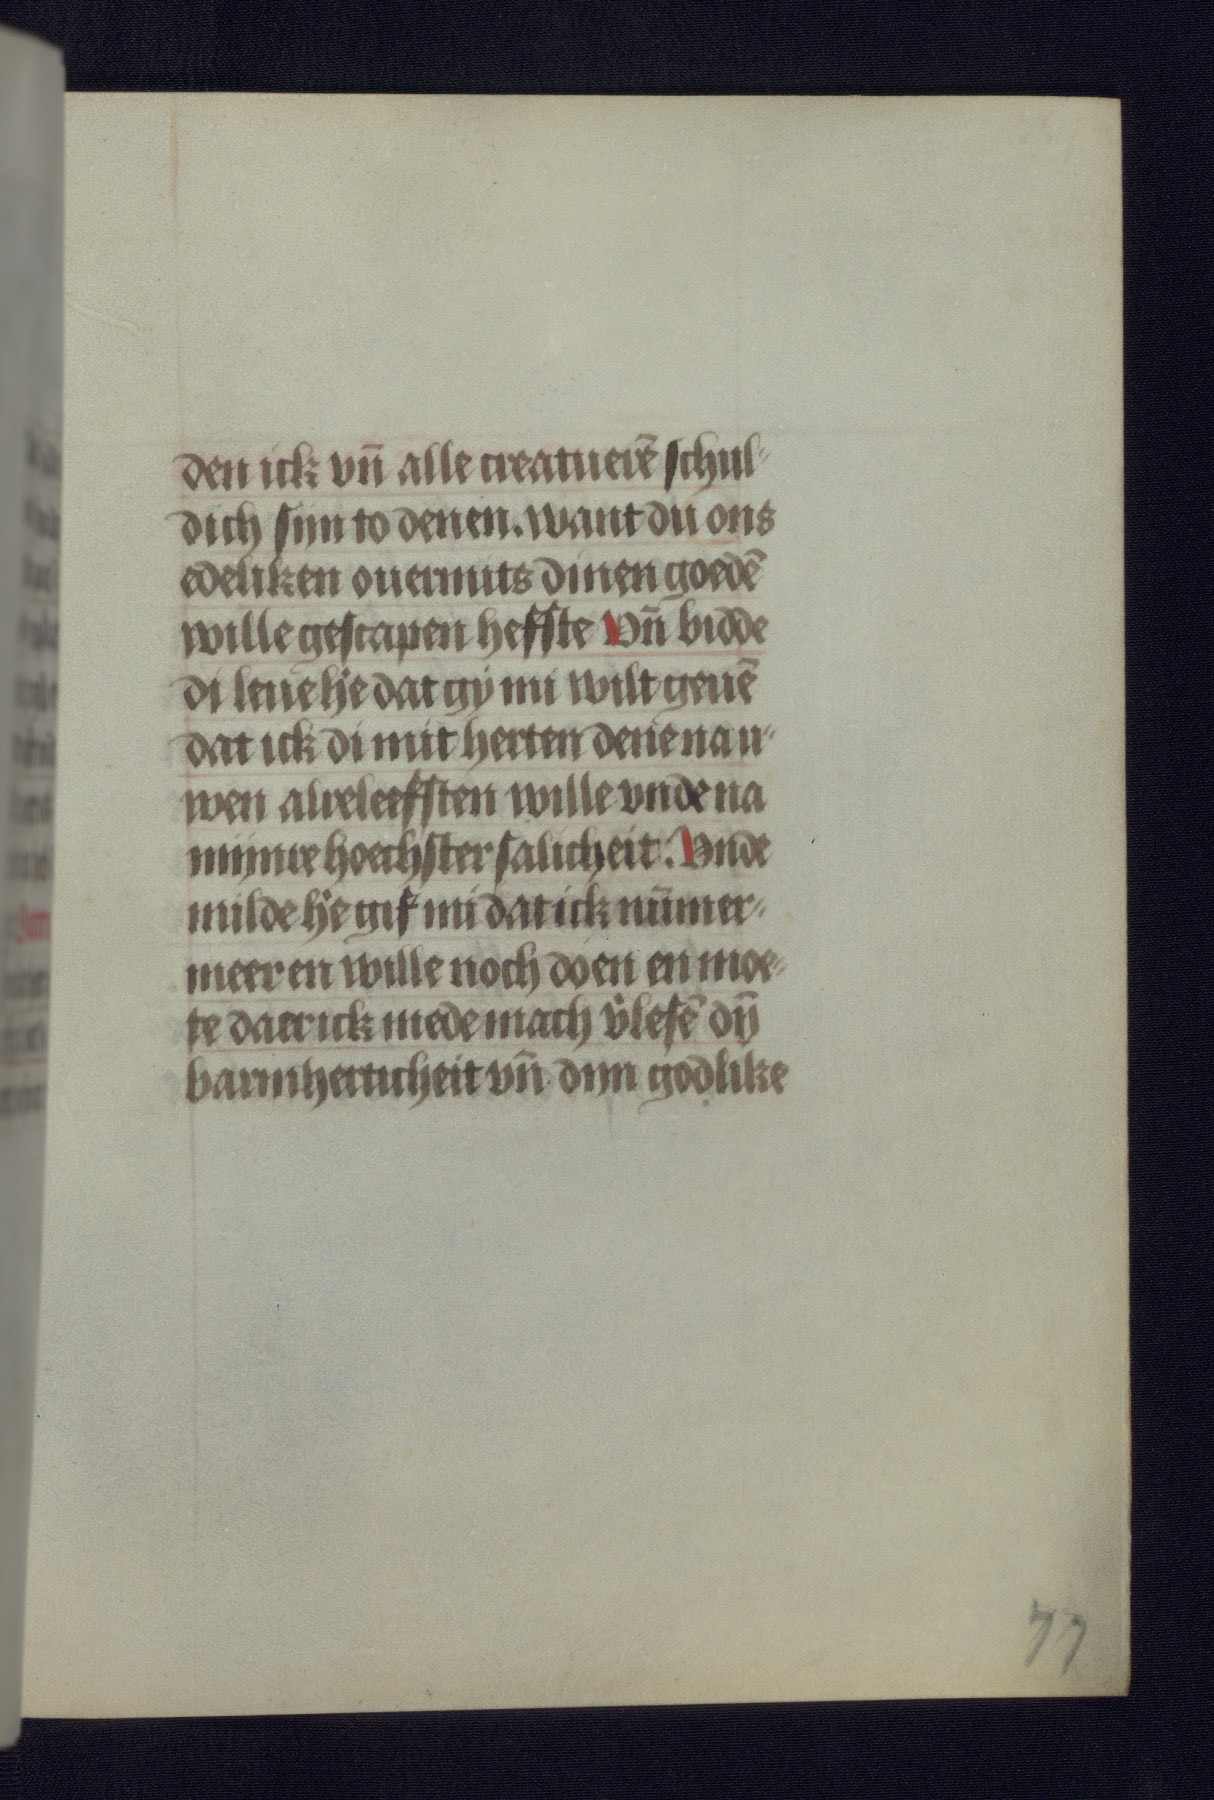 den ick vn̄ alle creatuerē schul-
dich sijn to denen. want du ons
edeliken ouermits dinen goedē
wille gescapen heffste Vn̄ bidde
di leue h̄e dat gy mi wilt geuē
dat ick di mit herten dene na u-
wen alreleefsten wille vnde na
mijnre hoechster salicheit. Vnde
milde h̄e gif mi dat ick nūmer-
meer en wille noch doen en moe-
te daer ick mede mach v̄lesē dȳ
barmherticheit vn̄ dijn godlike
77